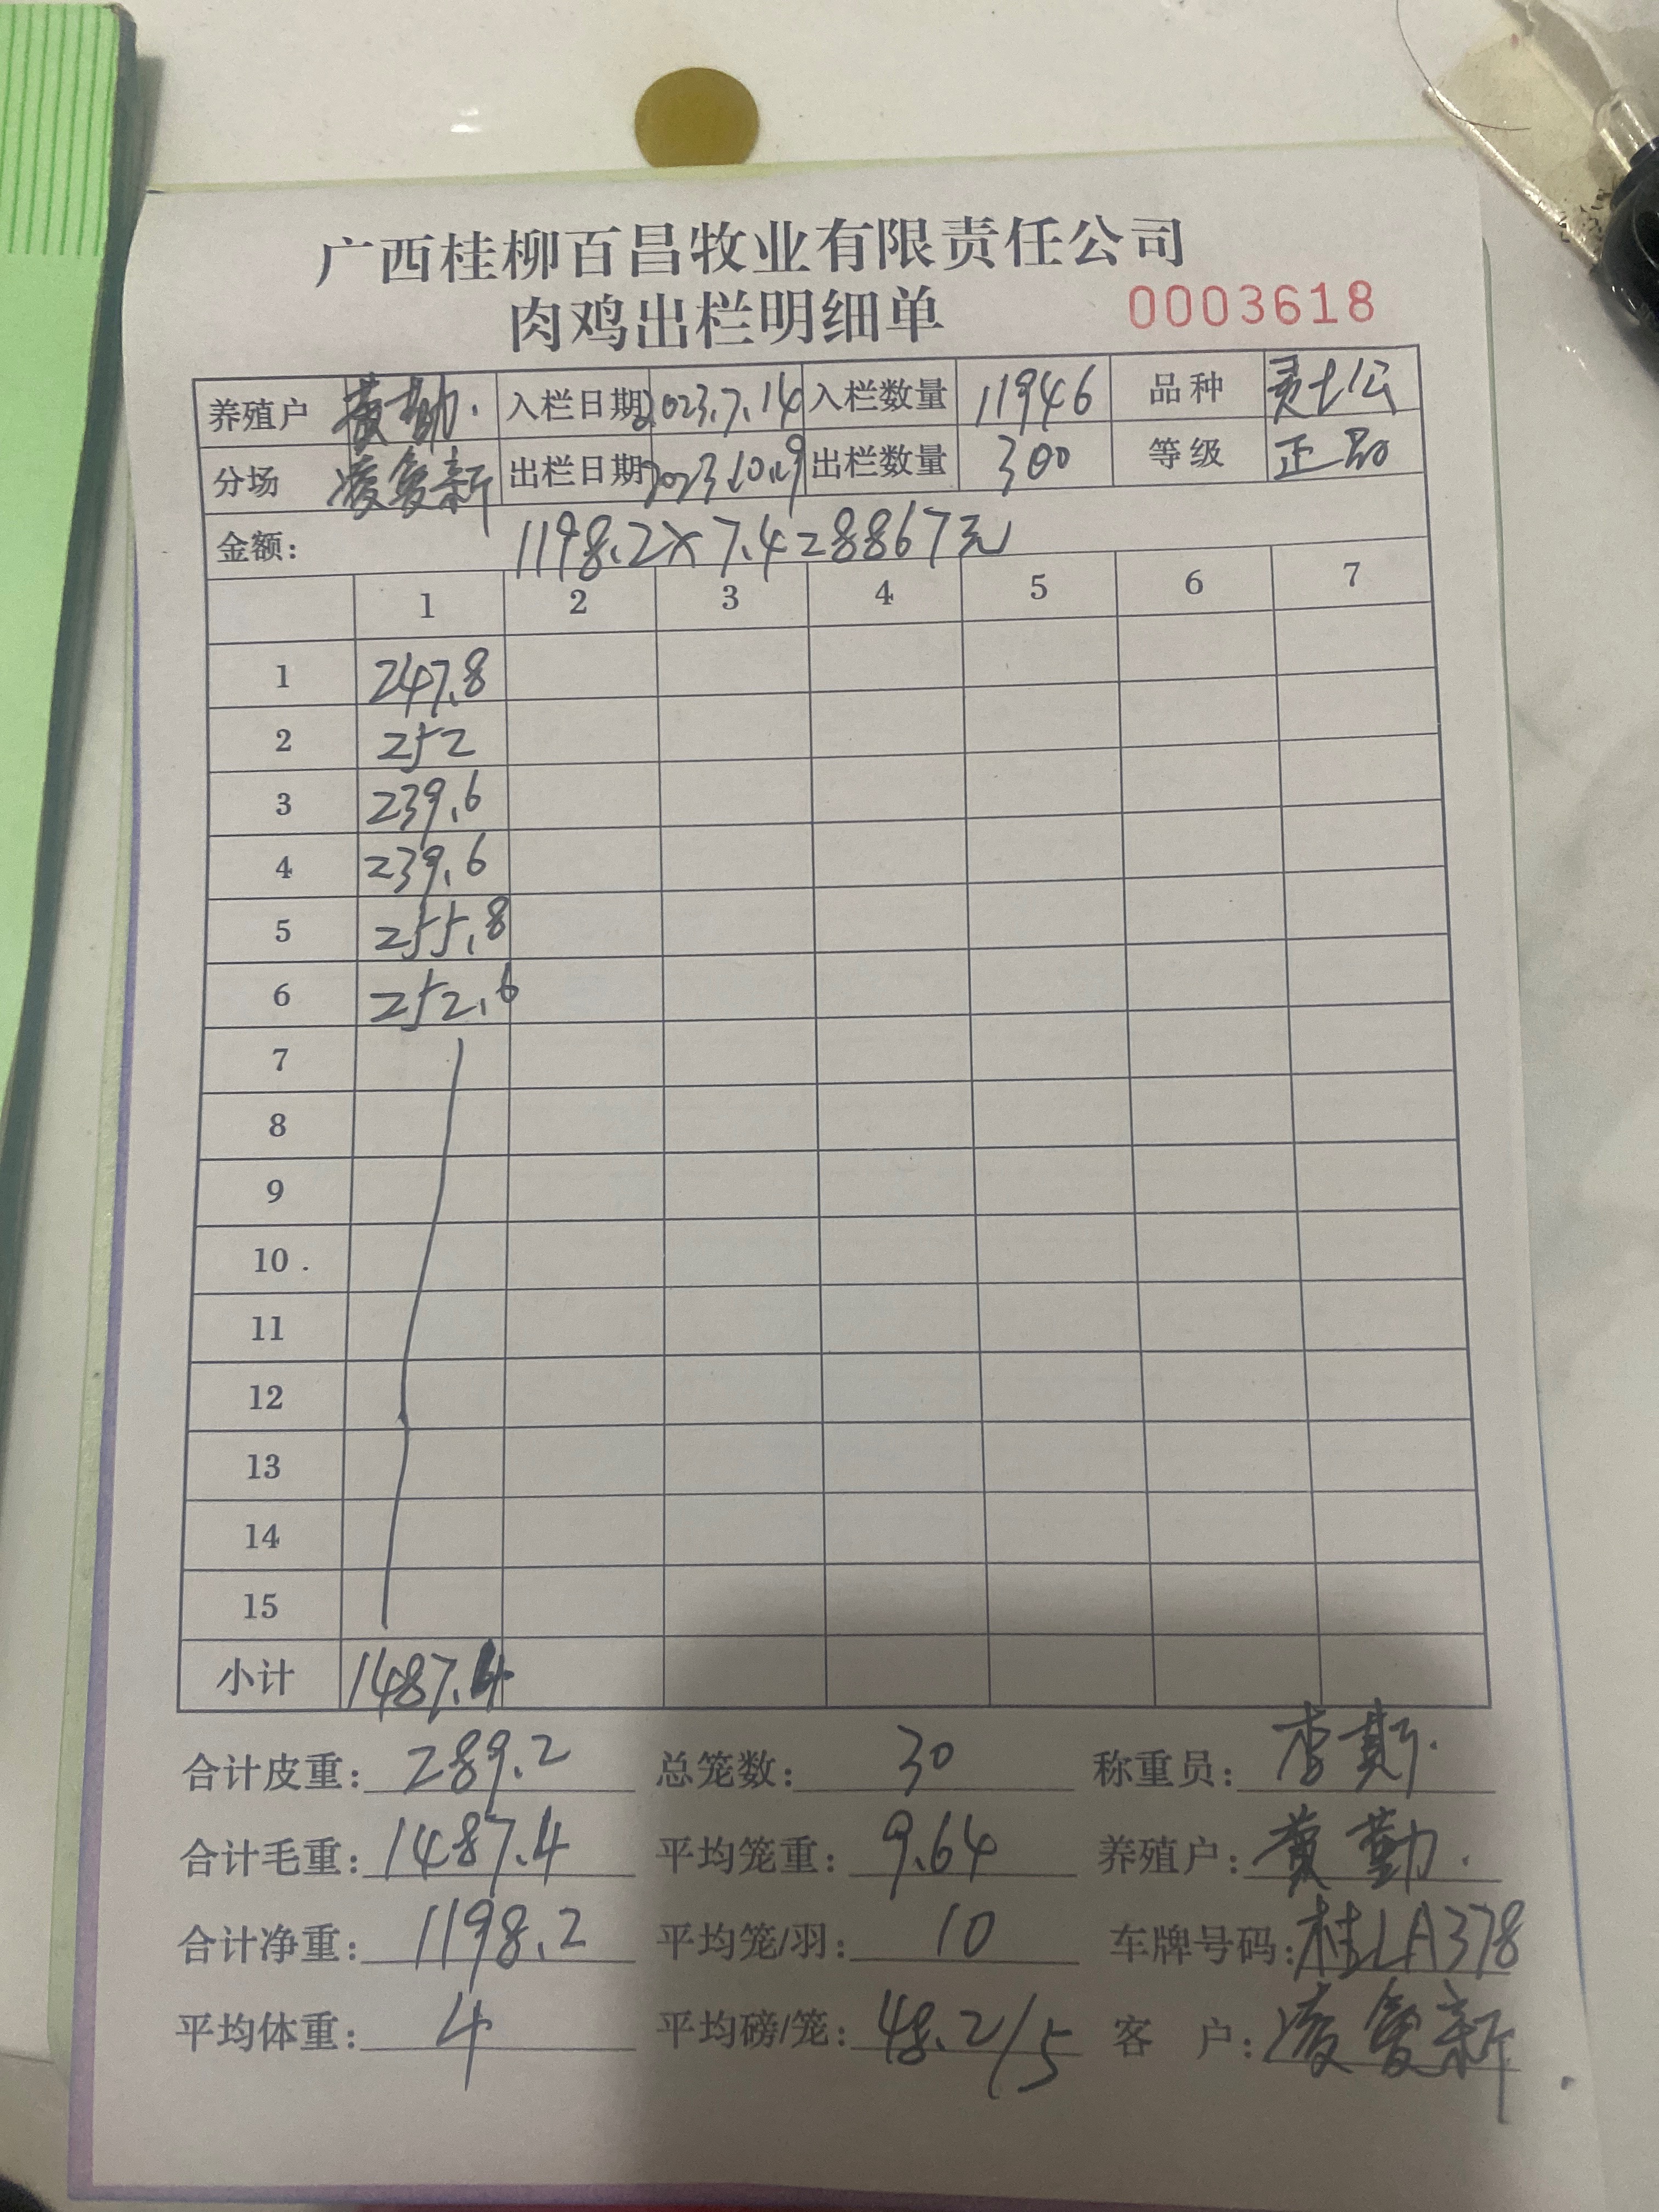 广西桂柳百昌牧业有限责任公司
肉鸡出栏明细单 0003618
养殖户 黄勤. 入栏日期 2023.7.14 入栏数量 11946 品种 灵土公
分场 凌复新 出栏日期 2023.10.19 出栏数量 300 等级 正品
金额: 1198.2×7.4=8867元
1 2 3 4 5 6 7
1 247.8
2 252
3 239.6
4 239.6
5 255.8
6 252.6
7
8
9
10 .
11
12
13
14
15
小计 1487.4
合计皮重: 289.2 总笼数: 30 称重员: 李斯.
合计毛重: 1487.4 平均笼重: 9.64 养殖户: 黄勤.
合计净重: 1198.2 平均笼/羽: 10 车牌号码: 桂LA378
平均体重: 4 平均磅/笼: 48.2/5 客 户: 凌复新